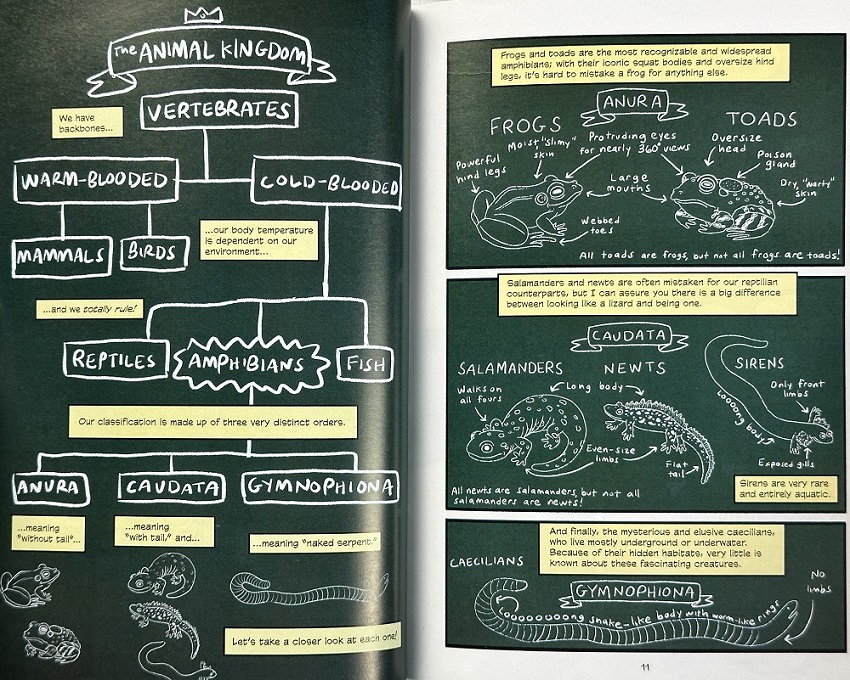 The ANIMAL KINGDOM
VERTEBRATES
We have
backbones...
WARM-BLOODED
COLD-BLOODED
MAMMALS
BIRDS
...our body temperature
is dependent on our
environment...
...and we totally rule!
REPTILES
AMPHIBIANS
FISH
Our classification is made up of three very distinct orders.
ANURA
CAUDATA
GYMNOPHIONA
...meaning
"without tail"...
...meaning
"with tail," and...
...meaning "naked serpent."
Let's take a closer look at each one!
Frogs and toads are the most recognizable and widespread
amphibians; with their iconic squat bodies and oversize hind
legs, it's hard to mistake a frog for anything else.
ANURA
FROGS
TOADS
Powerful
hind legs
Moist "slimy"
skin
Protruding eyes
for nearly 360° views
Oversize
head
Poison
gland
Large
mouths
Dry, "warty"
skin
Webbed
toes
All toads are frogs, but not all frogs are toads!
Salamanders and newts are often mistaken for our reptilian
counterparts, but I can assure you there is a big difference
between looking like a lizard and being one.
CAUDATA
SALAMANDERS
NEWTS
SIRENS
Walks on
all fours
Long body
Only front
limbs
Looooong body
Even-size
limbs
Flat
tail
Exposed gills
All newts are salamanders, but not all
salamanders are newts!
Sirens are very rare
and entirely aquatic.
And finally, the mysterious and elusive caecilians,
who live mostly underground or underwater.
Because of their hidden habitats, very little is
known about these fascinating creatures.
CAECILIANS
GYMNOPHIONA
No
limbs
snake-like body with worm-like rings
11